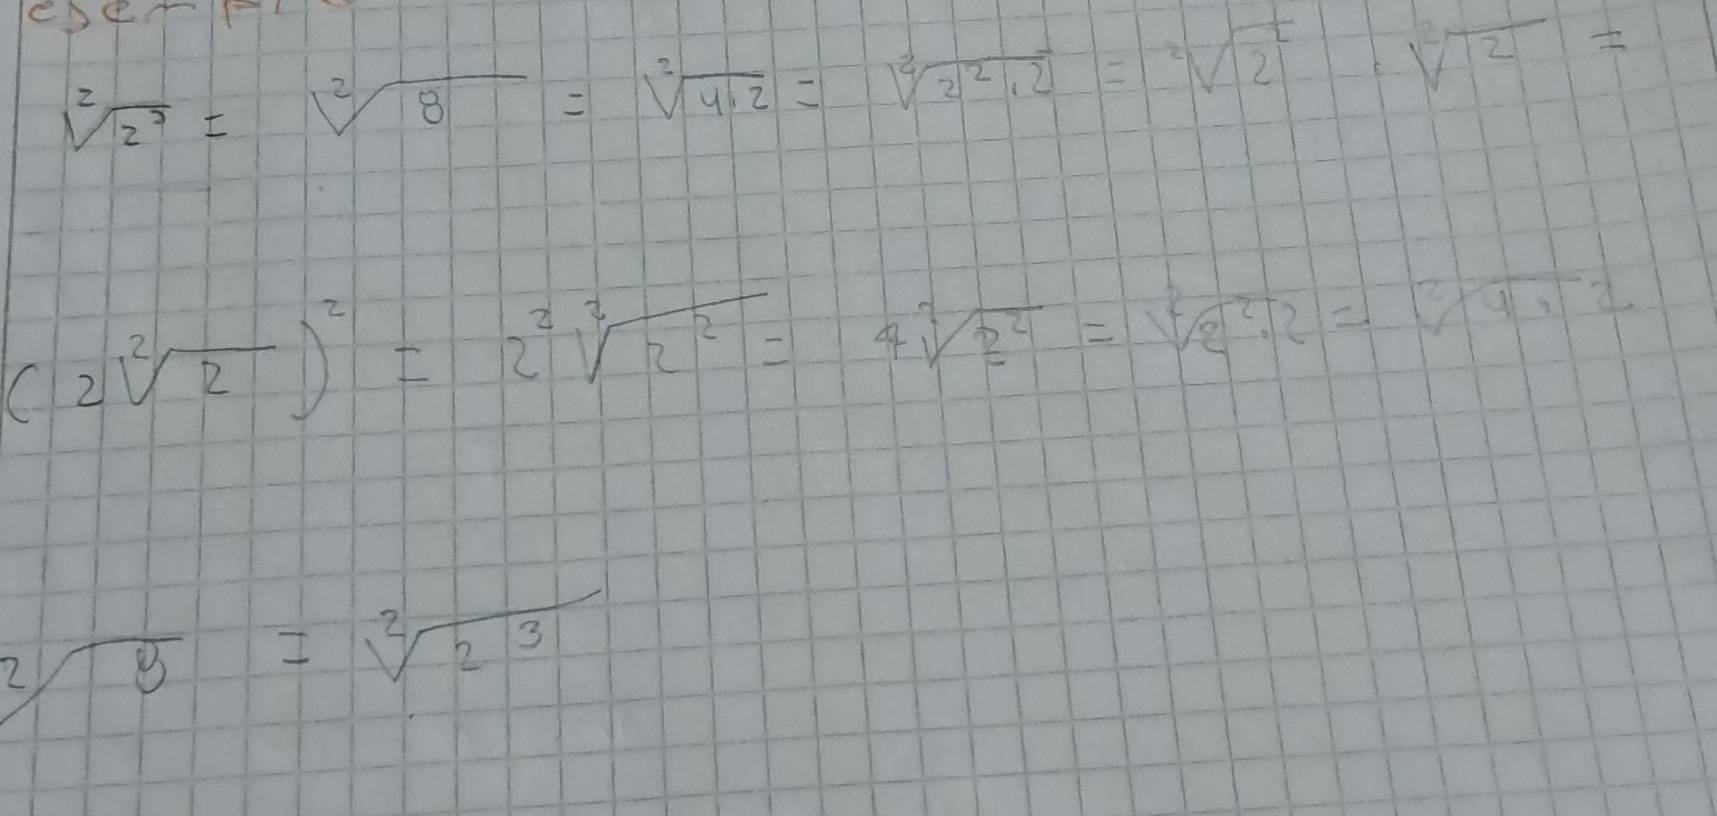 ²√2³ = ²√8 = ²√4.2 = ²√2².2 = ²√2² . ²√2 =
(2 ²√2)² = 2² ²√2² = 4 ²√2² = ²√2².2 = ²√4.2
²√8 = ²√2³